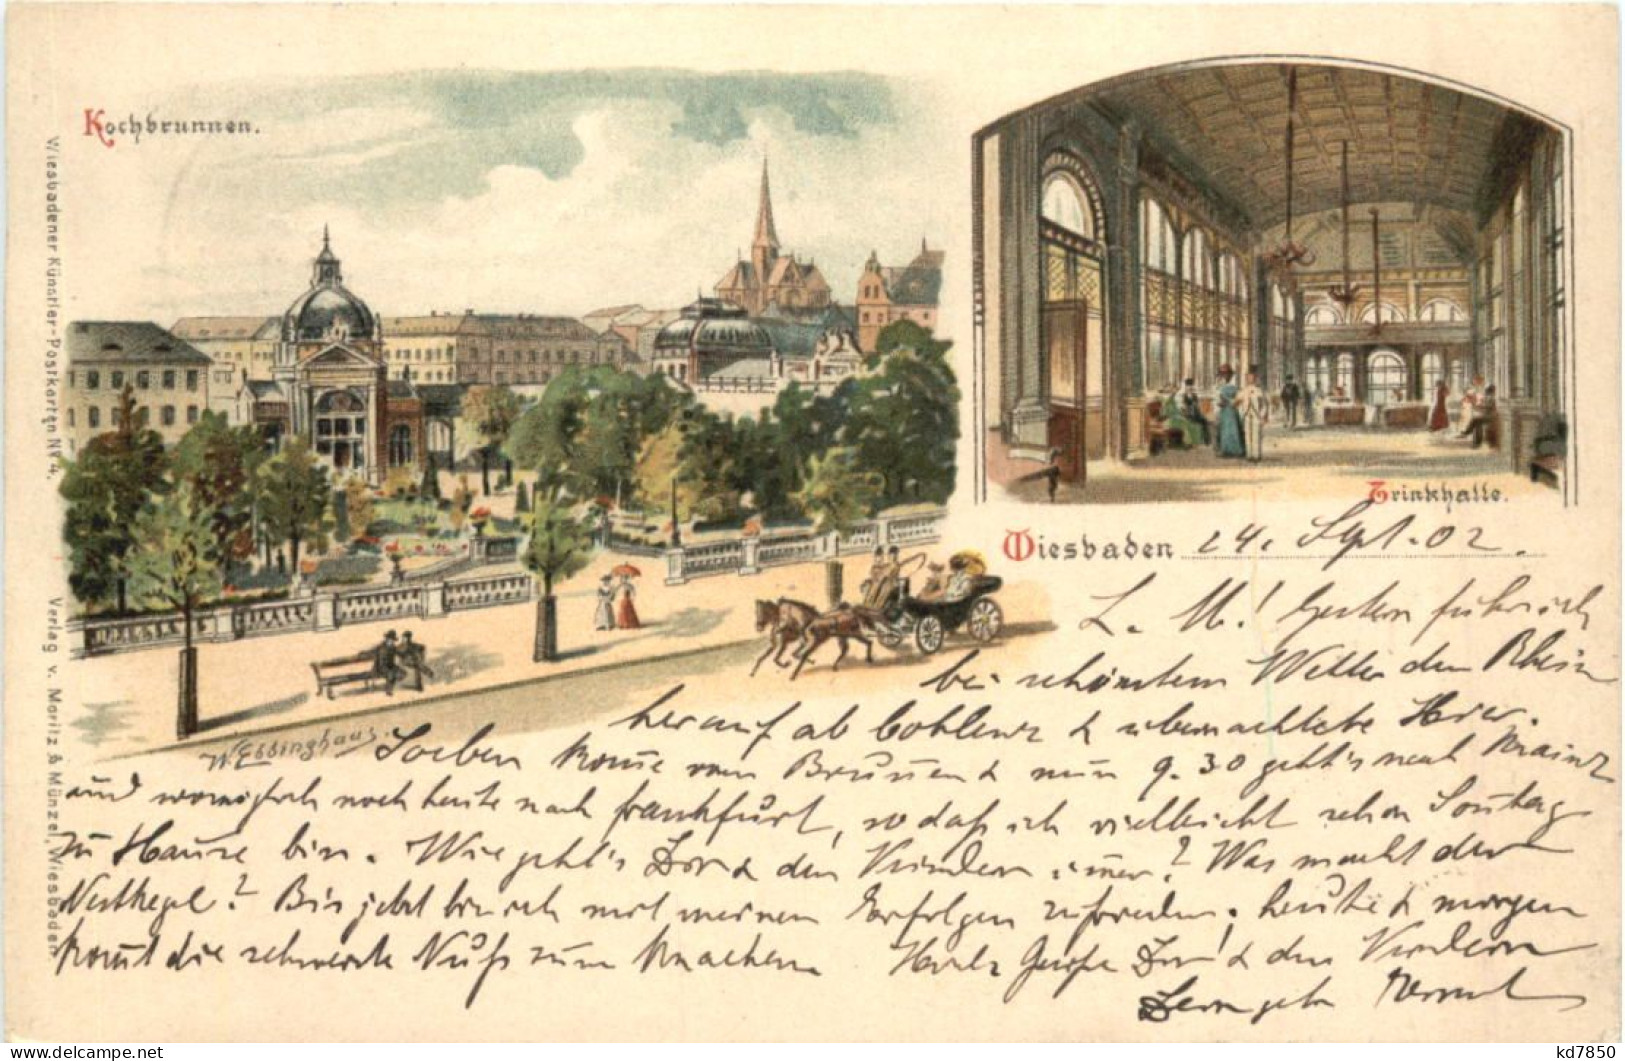 Kochbrunnen.
Trinkhalle.
Wiesbadener Künstler-Postkarten No 4.
Verlag v. Moritz & Münzel, Wiesbaden
W. Ebbinghaus.
Wiesbaden 24. Sept. 02.
L. M! Gestern fuhr ich
bei schönstem Wetter den Rhein
herauf ab Coblenz & übernachtete Hier.
Soeben komme vom Brunnen & nun 9.30 geht's nach Mainz
und womöglich noch heute nach Frankfurt, so daß ich vielleicht schon Sonntag
zu Hause bin. Wie geht's Dir & den Kindern immer? Was macht der
Nestkegel? Bin jetzt bin ich mit meinen Erfolgen zufrieden, heute & morgen
kommt die schwerste Nuß zum knacken. Herzl. Grüße Dir & den Kindern
Dein
kd7850